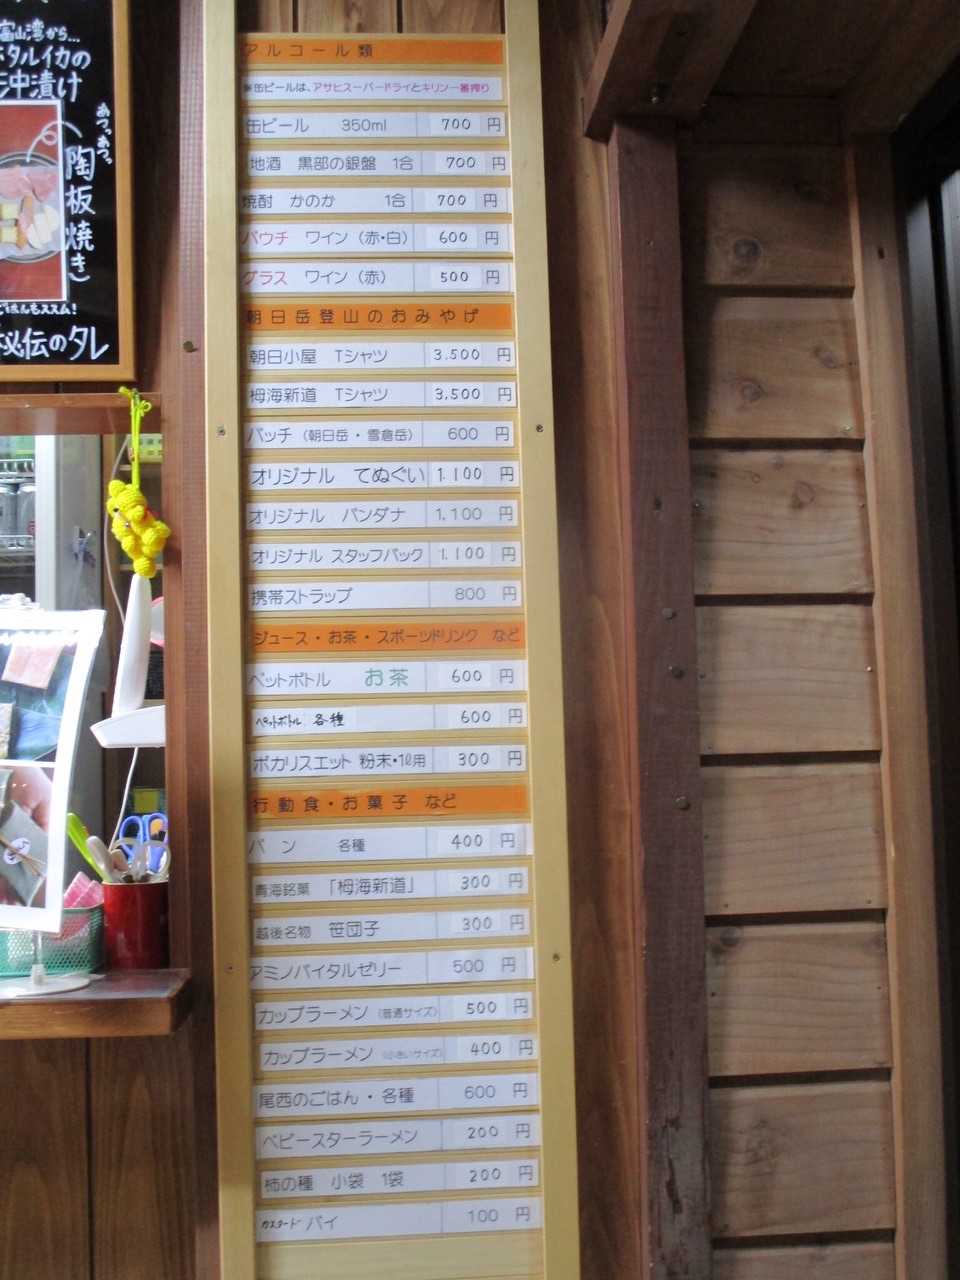 富山湾から…
ホタルイカの
沖漬け
あつっあつっ
陶板焼き
ごはんもススム!
秘伝のタレ
アルコール類
※缶ビールは、アサヒスーパードライとキリン一番搾り
缶ビール 350ml 700 円
地酒 黒部の銀盤 1合 700 円
焼酎 かのか 1合 700 円
パウチ ワイン (赤・白) 600 円
グラス ワイン (赤) 500 円
朝日岳登山のおみやげ
朝日小屋 Tシャツ 3,500 円
栂海新道 Tシャツ 3,500 円
バッチ (朝日岳・雪倉岳) 600 円
オリジナル てぬぐい 1.100 円
オリジナル バンダナ 1,100 円
オリジナル スタッフバック 1.100 円
携帯ストラップ 800 円
ジュース・お茶・スポーツドリンク など
ペットボトル お茶 600 円
ペットボトル 各種 600 円
ポカリスエット 粉末・1ℓ用 300 円
行動食・お菓子 など
パン 各種 400 円
青海銘菓 「栂海新道」 300 円
越後名物 笹団子 300 円
アミノバイタルゼリー 500 円
カップラーメン (普通サイズ) 500 円
カップラーメン (小さいサイズ) 400 円
尾西のごはん・各種 600 円
ベビースターラーメン 200 円
柿の種 小袋 1袋 200 円
カスタード パイ 100 円